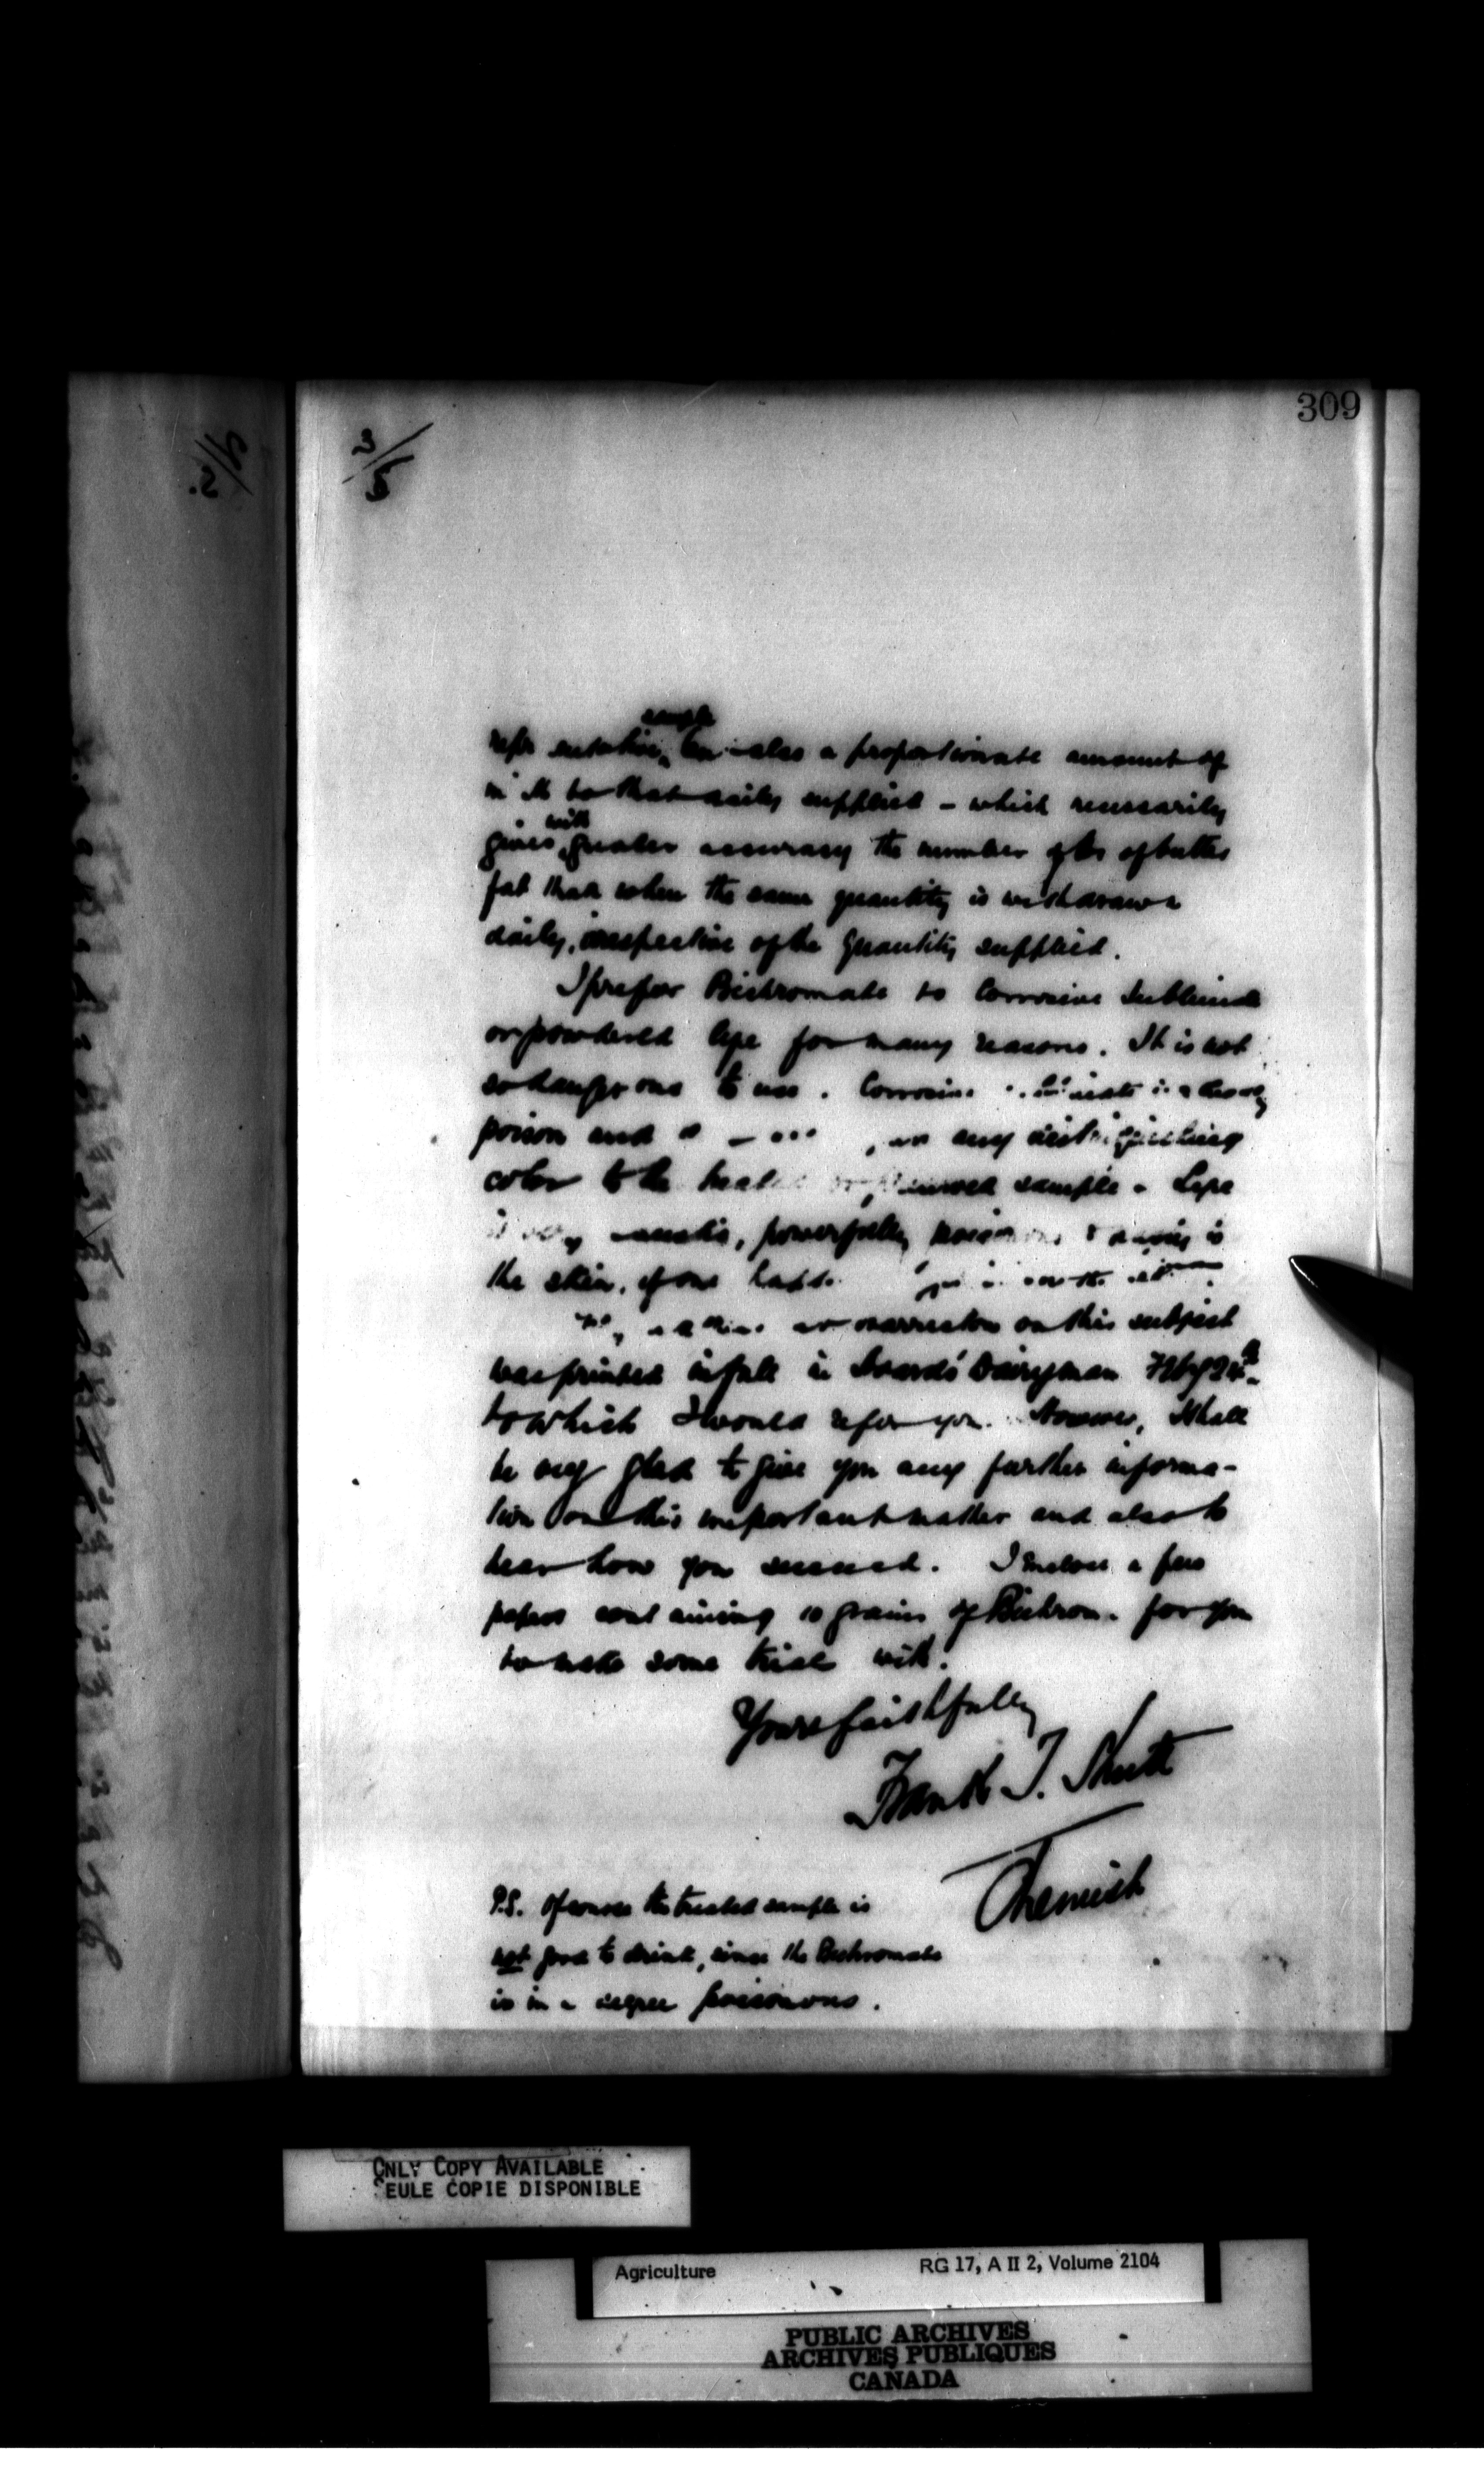 309
3/5
sample
representative, but also a proportionate amount of
milk to that daily supplied - which necessarily
with
gives greater accuracy the number of lbs of butter
fat than when the same quantity is withdrawn
daily, irrespective of the quantity supplied.
I prefer Bichromate to Corrosive Sublimate
or powdered lye for many reasons. It is not
so dangerous to use. Corrosive Sublimate is a deadly
poison and any distinguishing
color to the sample. Lye
is very caustic, powerfully poisonous &
the skin, if one
on this subject
was printed in full in Hoards' Dairyman
to which I would refer you. However, I shall
be very glad to give you any further informa-
tion on this important matter and also to
hear how you succeed. I enclose a few
papers containing 10 grains of Bichrom. for you
to make some trial with.
Yours faithfully
Frank T. Shutt
Chemist
P.S. Of course the treated sample is
not good to drink, since the Bichromate
is in a degree poisonous.
ONLY COPY AVAILABLE
SEULE COPIE DISPONIBLE
Agriculture RG 17, A II 2, Volume 2104
PUBLIC ARCHIVES
ARCHIVES PUBLIQUES
CANADA